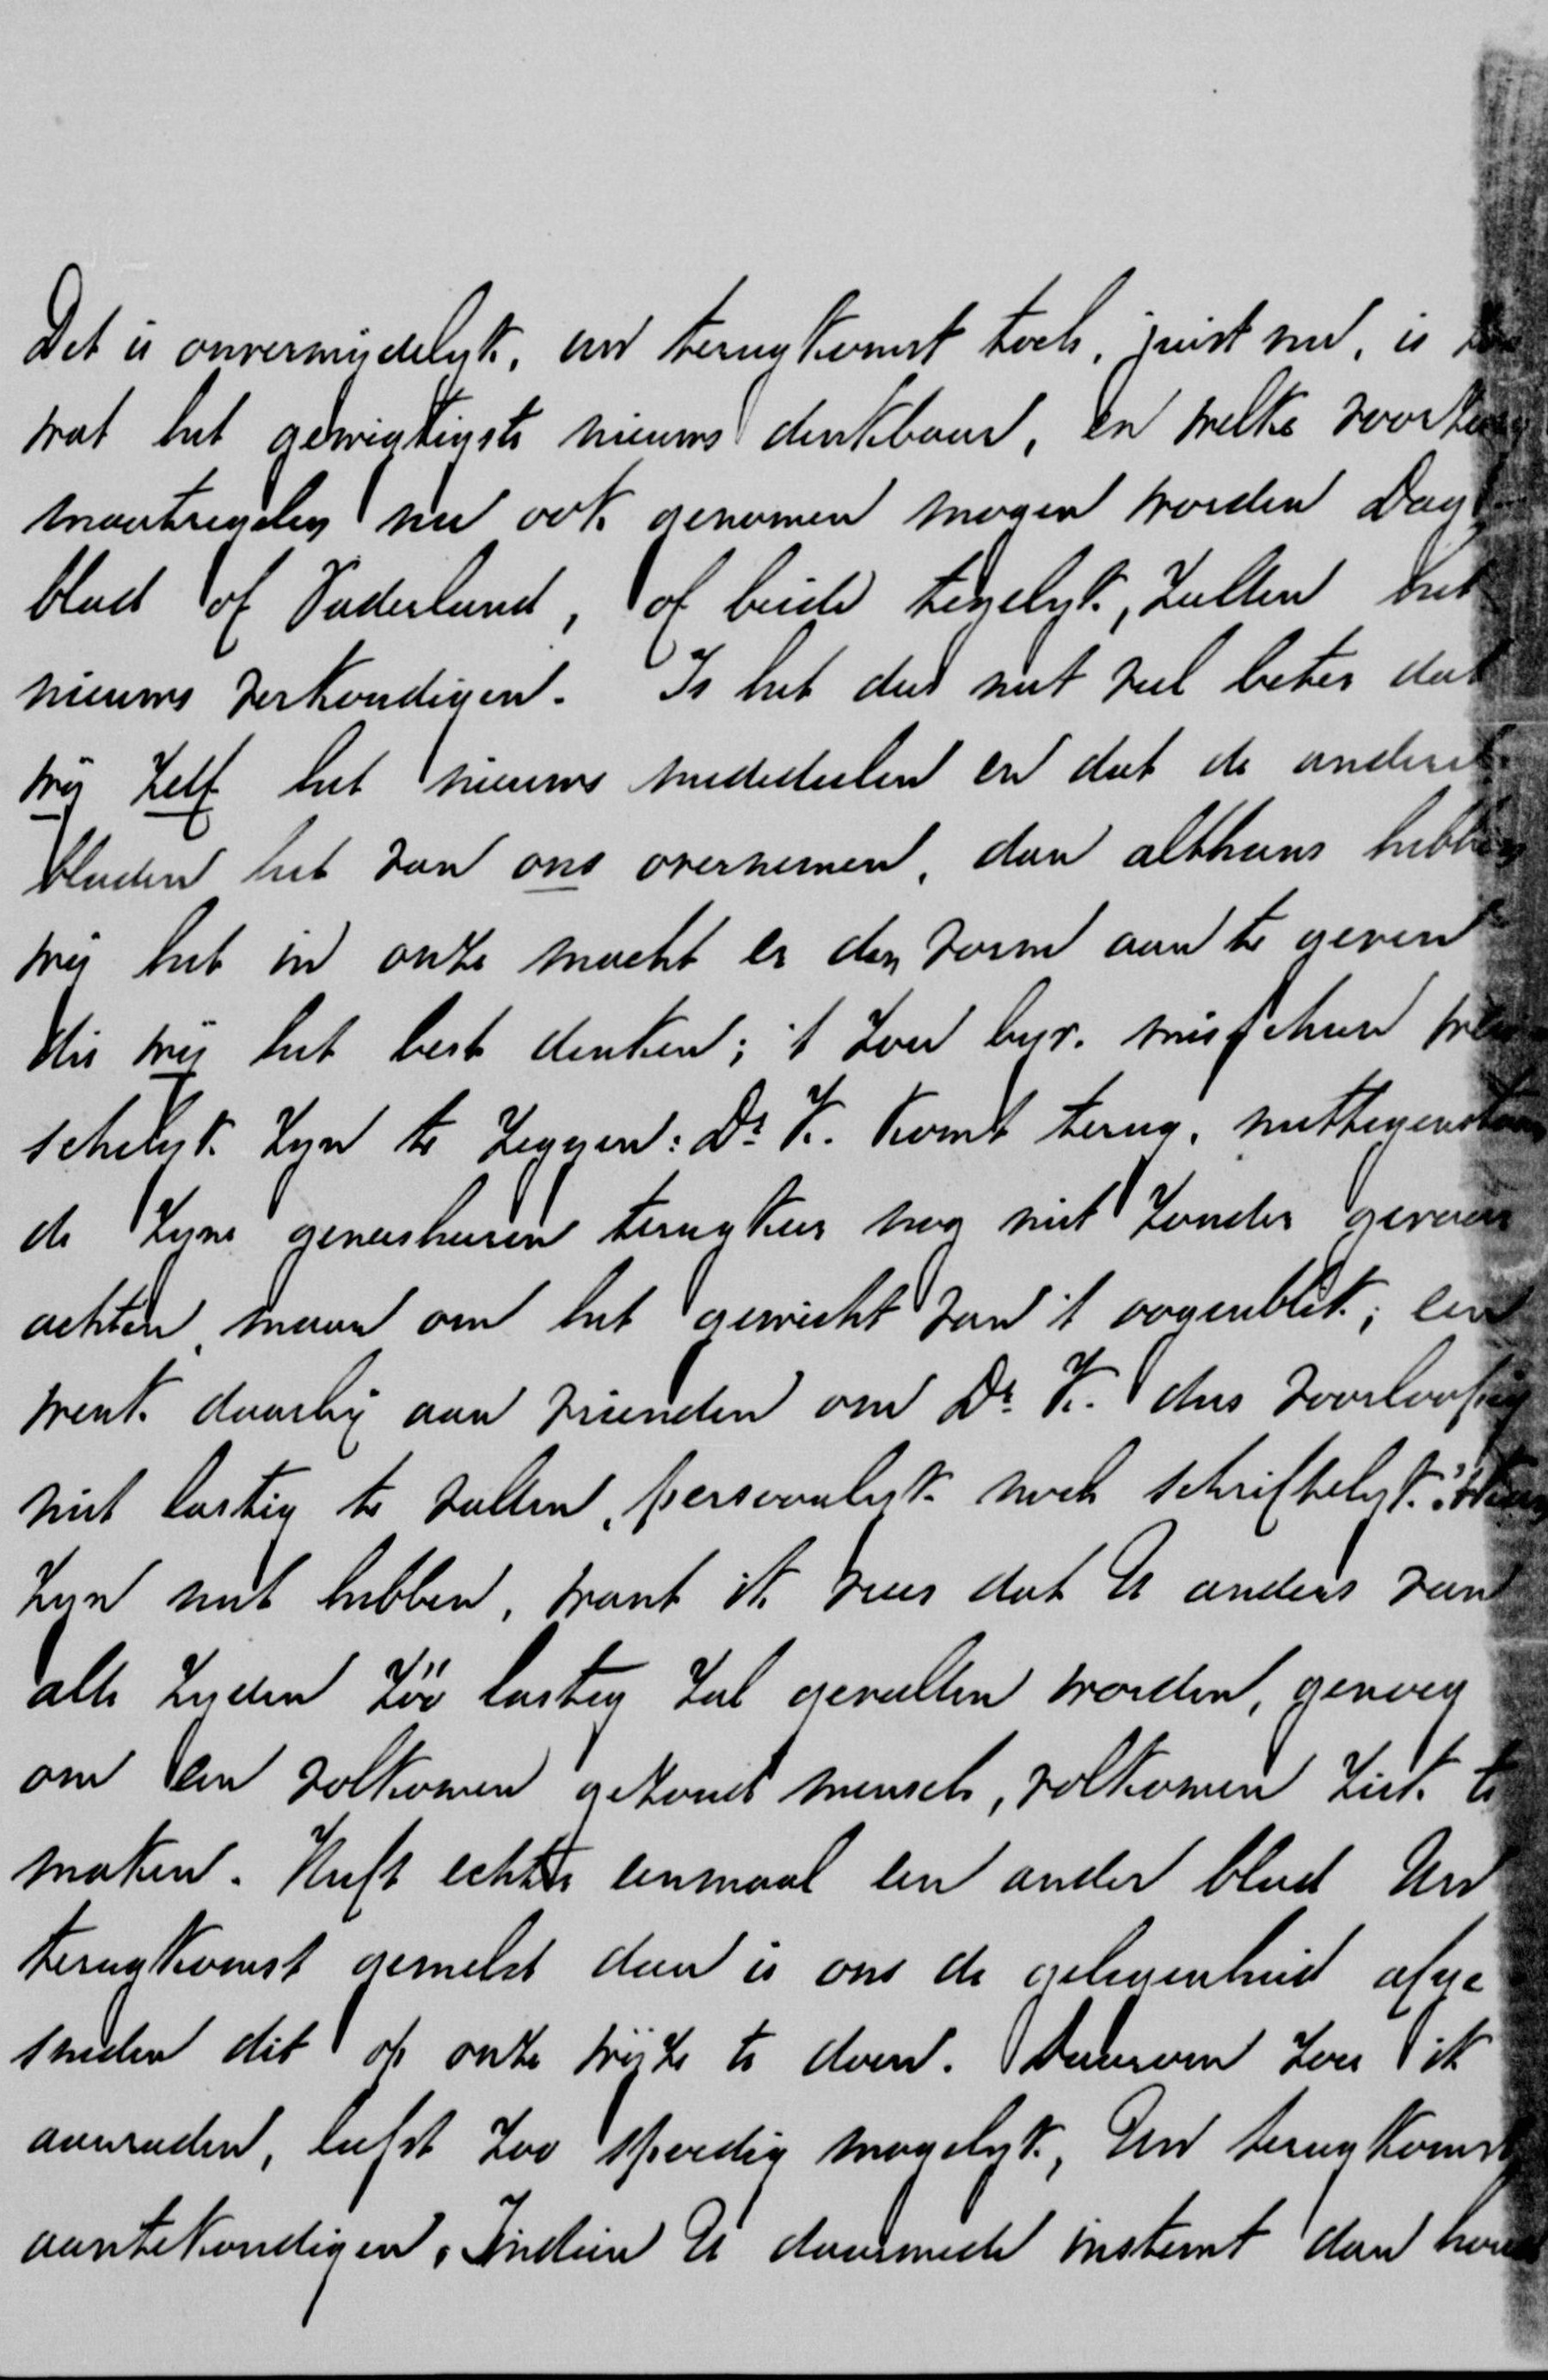 Dat is onvermijdelyk, uw terugkomst toch, juist nu, is
wat het gewigtigste nieuws denkbaar, en welke voorzorg
maatregelen nu ook genomen mogen worden Dag-
blad of Vaderland, of beide tegelyk, zullen het
nieuws verkondigen. Is het dus niet veel beter dat
wij zelf het nieuws mededeelen en dat de andere
bladen het van ons overnemen, dan althans hebben
wij het in onze macht er den vorm aan te geven
die wij het best denken; 't zou byv. misschien wen
schelyk zyn te zeggen: Dr K. komt terug, niettegenstaan
de zyne geneesheeren terugkeer nog niet zonder gevaar
achten, maar om het gewicht van 't oogenblik; een
wenk daarbij aan vrienden om Dr K. dus voorloopig
niet lastig te vallen, persoonlyk noch schriftelyk.
zyn nut hebben, want ik vrees dat U anders van
alle zyden zóó lastig zal gevallen worden, genoeg
om een volkomen gezond mensch, volkomen ziek te
maken. Heeft echter eenmaal een ander blad Uw
terugkomst gemeld dan is ons de gelegenheid afge
sneden dit op onze wijze te doen. Daarom zou ik
aanraden, liefst zoo spoedig mogelyk, Uw terugkomst
aantekondigen. Indien U daarmede instemt dan